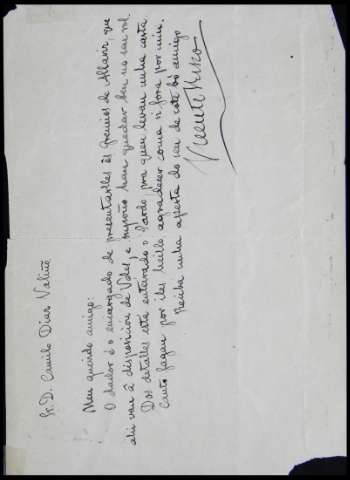 Sr. D. Camilo Díaz Valiño
Meu querido amigo:
O dador é o encargado de presentarlles ós Gremios de Allariz, que
alí van á disposición de Vdes, e supoño han quedar ben no seu rol.
Dos detalles está enterado o Pardo, pra quen levan unha carta.
Canto fagan por iles heillo agradecer coma si fora por min.
Reciba unha aperta do seu de cote bó amigo
Vicente Risco